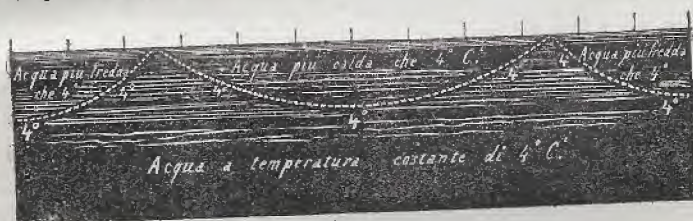 Acqua più fredda
che 4°
4°
4°
Acqua più calda che 4° C.
4°
4°
4°
4°
Acqua più fredda
che 4°
4°
Acqua a temperatura costante di 4° C.